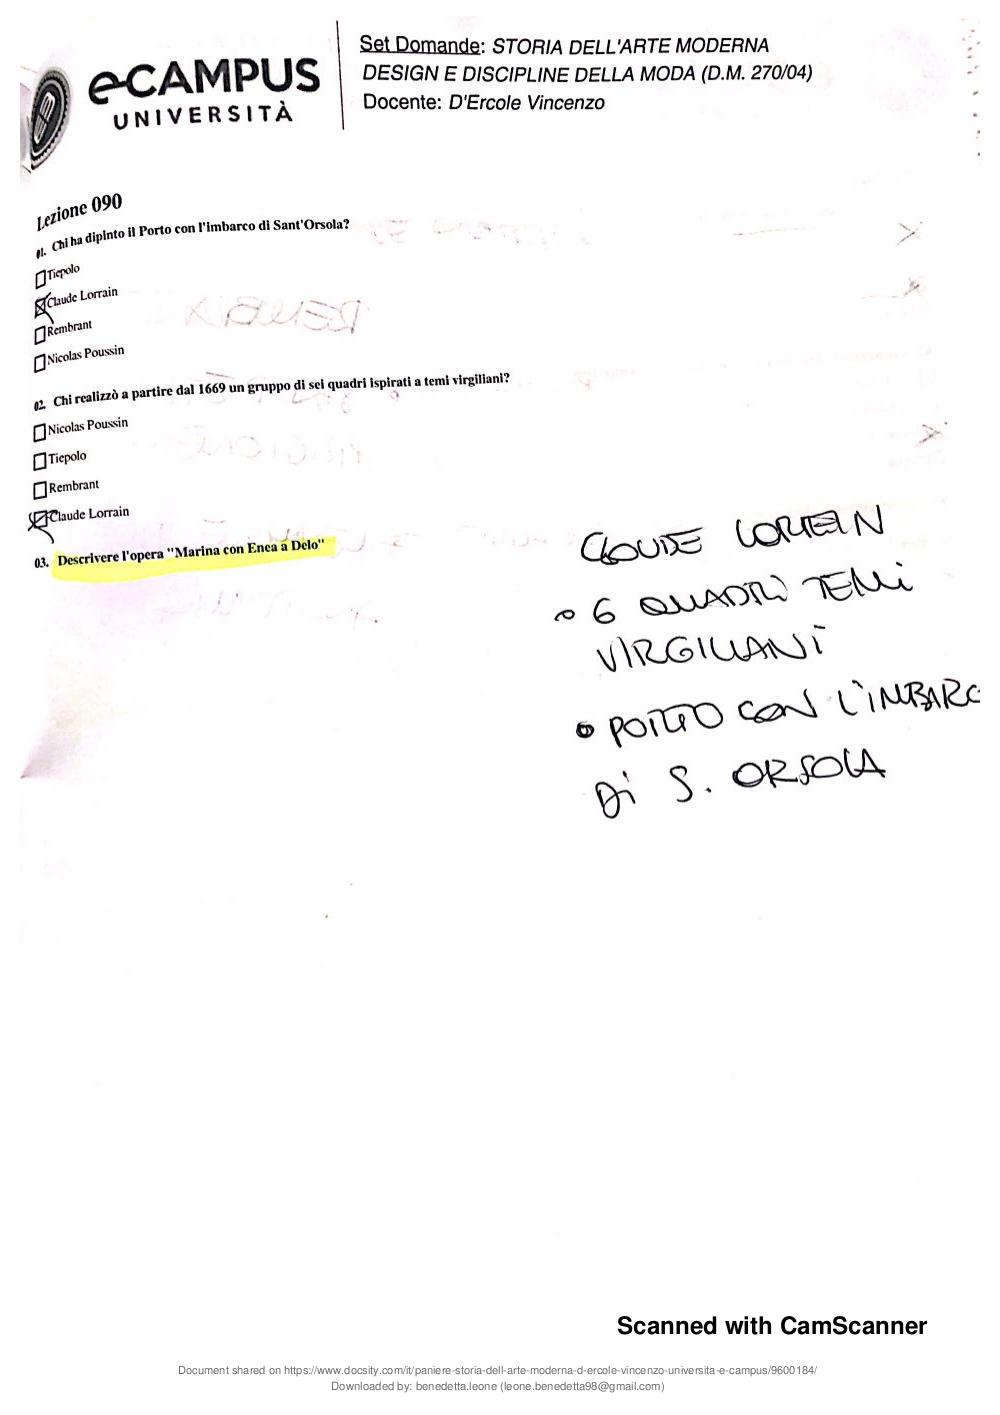 e-CAMPUS
UNIVERSITÀ
Set Domande: STORIA DELL'ARTE MODERNA
DESIGN E DISCIPLINE DELLA MODA (D.M. 270/04)
Docente: D'Ercole Vincenzo
Lezione 090
01. Chi ha dipinto il Porto con l'imbarco di Sant'Orsola?
Tiepolo
Claude Lorrain
Rembrant
Nicolas Poussin
02. Chi realizzò a partire dal 1669 un gruppo di sei quadri ispirati a temi virgiliani?
Nicolas Poussin
Tiepolo
Rembrant
Claude Lorrain
03. Descrivere l'opera "Marina con Enea a Delo"
CLOUDE LORREIN
• 6 QUADRI TEMI
VIRGILIANI
• PORTO CON L'IMBARC
Di S. ORSOLA
Scanned with CamScanner
Document shared on https://www.docsity.com/it/paniere-storia-dell-arte-moderna-d-ercole-vincenzo-universita-e-campus/9600184/
Downloaded by: benedetta.leone (leone.benedetta98@gmail.com)